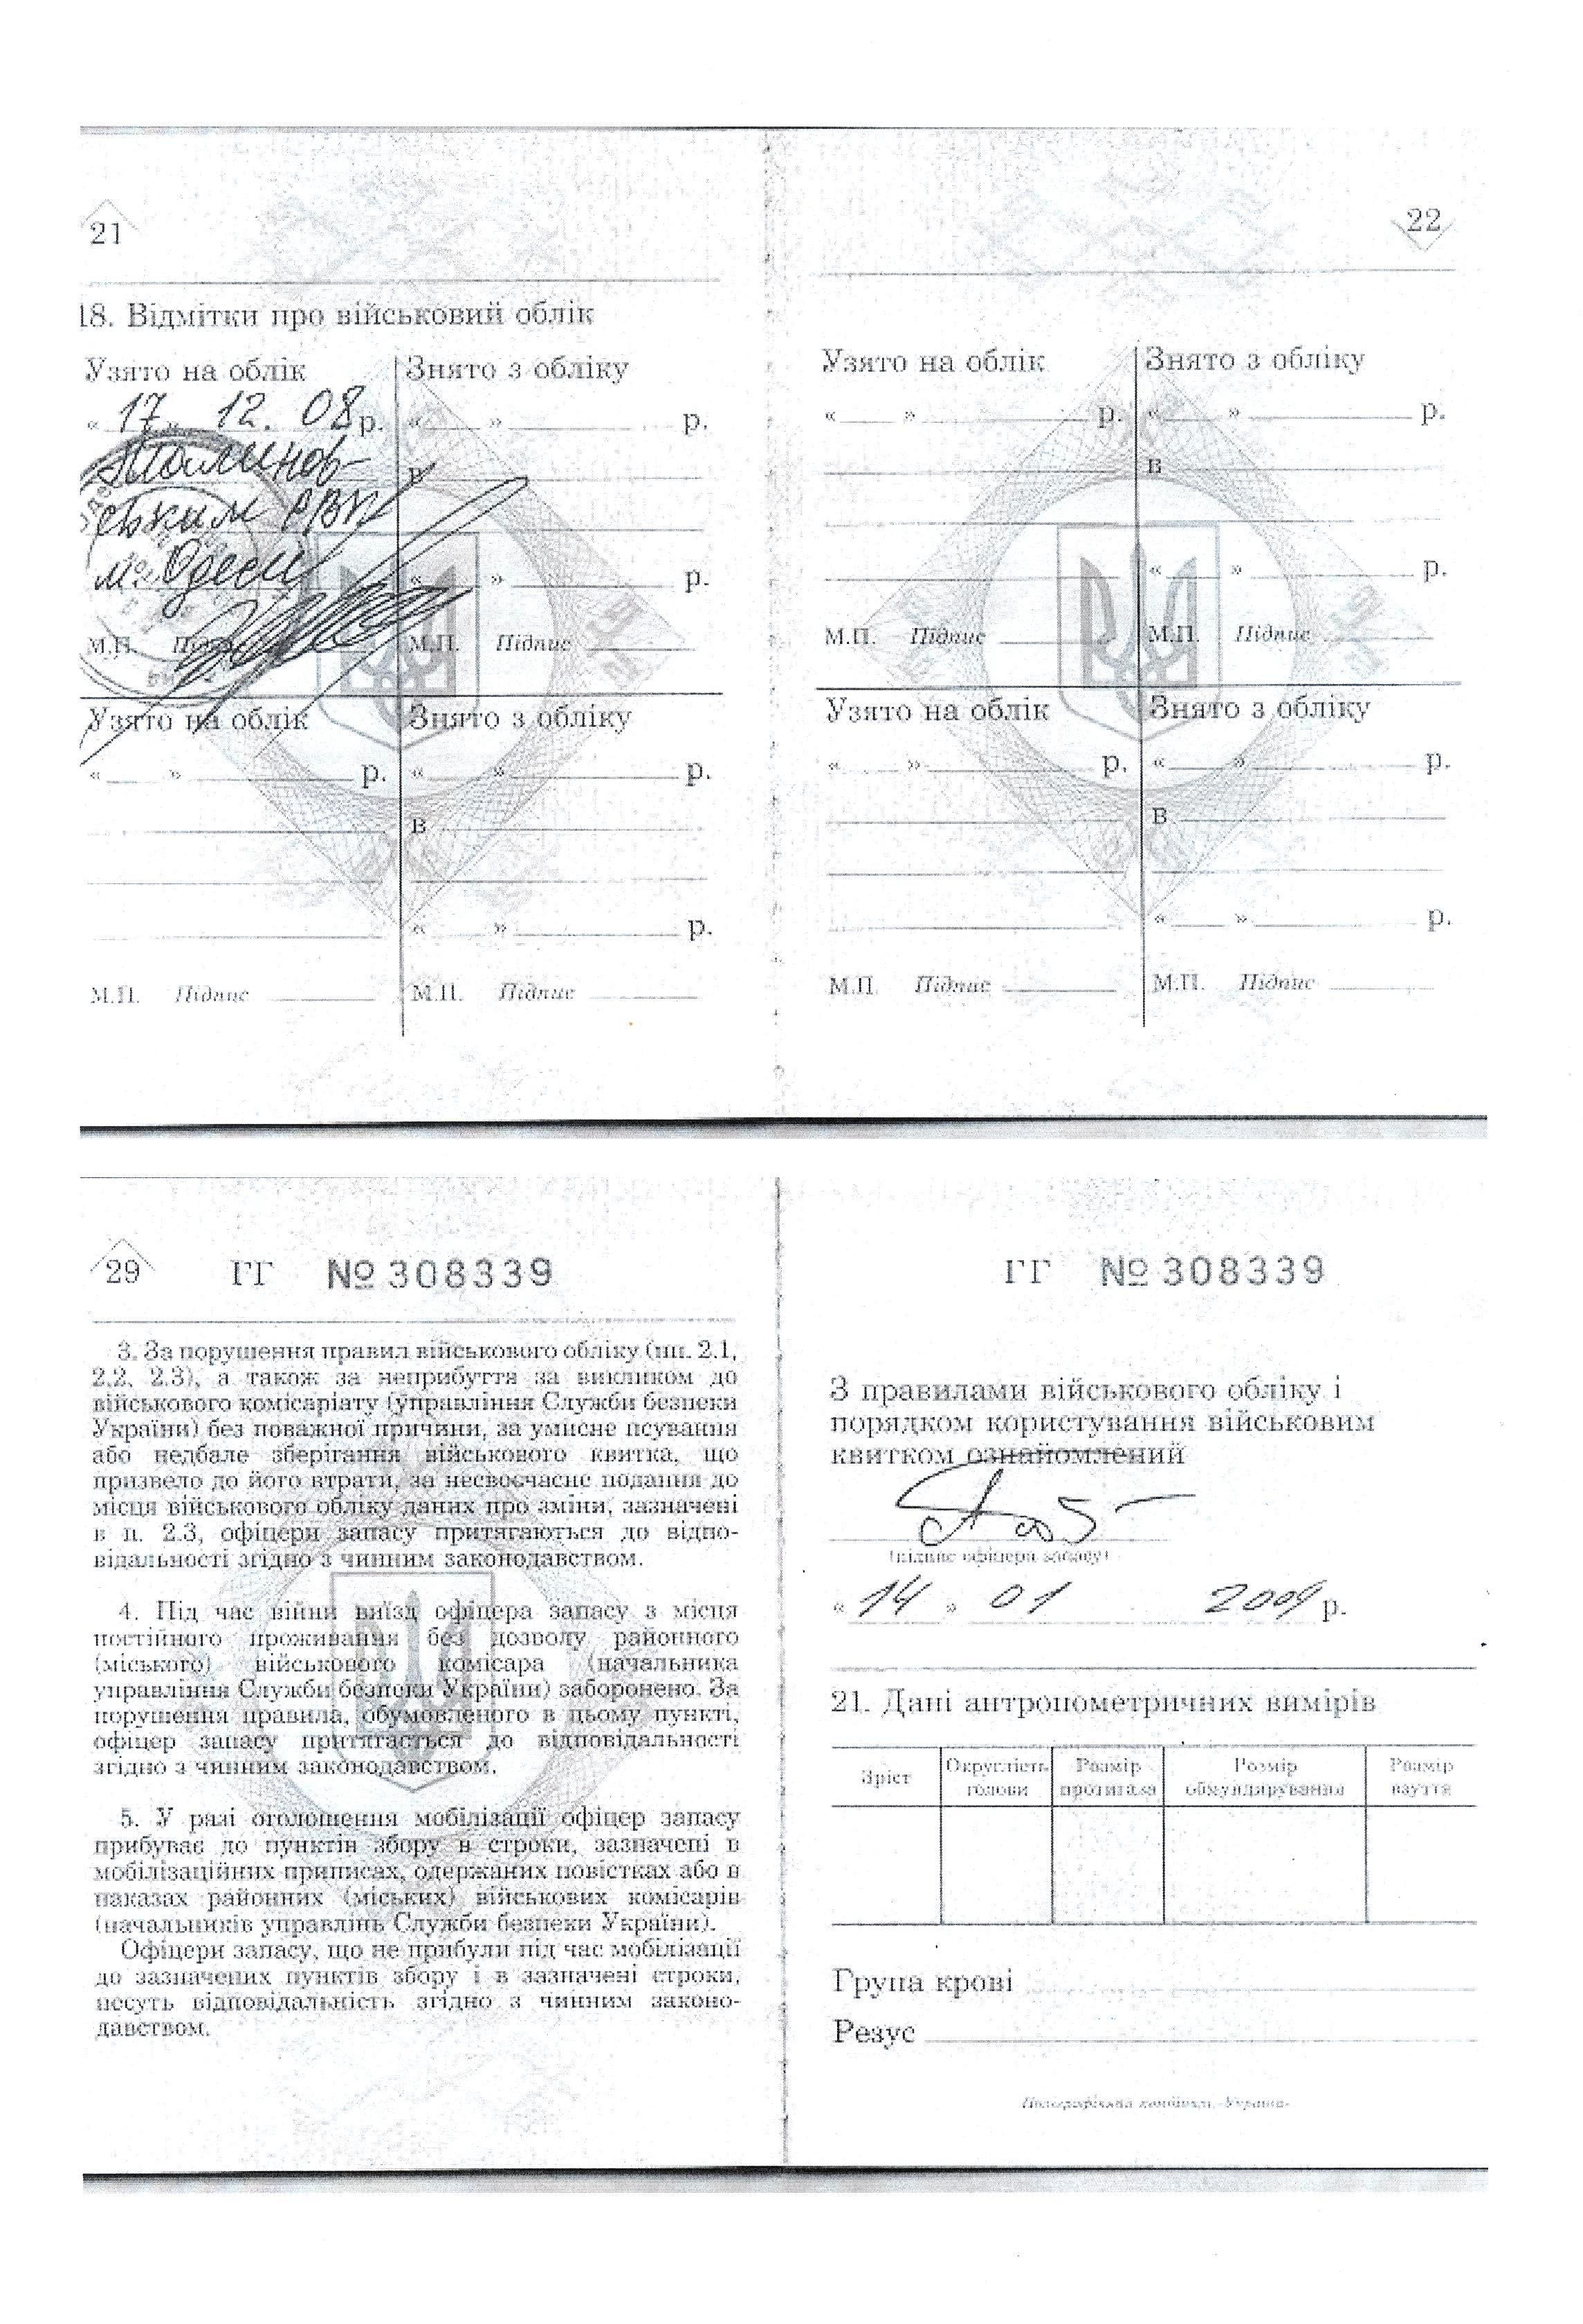 21
18. Відмітки про військовий облік
Узято на облік Знято з обліку
« 17 » 12. 08 р. « » р.
Малинов- в
ським РВК
м. Одеси « » р.
М.П. Підпис М.П. Підпис
Узято на облік Знято з обліку
« » р. « » р.
в
« » р.
М.П. Підпис М.П. Підпис
22
Узято на облік Знято з обліку
« » р. « » р.
в
« » р.
М.П. Підпис М.П. Підпис
Узято на облік Знято з обліку
« » р. « » р.
в
« » р.
М.П. Підпис М.П. Підпис
29 ГГ № 308339
3. За порушення правил військового обліку (пп. 2.1,
2.2, 2.3), а також за неприбуття за викликом до
військового комісаріату (управління Служби безпеки
України) без поважної причини, за умисне псування
або недбале зберігання військового квитка, що
призвело до його втрати, за несвоєчасне подання до
місця військового обліку даних про зміни, зазначені
в п. 2.3, офіцери запасу притягаються до відпо-
відальності згідно з чинним законодавством.
4. Під час війни виїзд офіцера запасу з місця
постійного проживання без дозволу районного
(міського) військового комісара (начальника
управління Служби безпеки України) заборонено. За
порушення правила, обумовленого в цьому пункті,
офіцер запасу притягається до відповідальності
згідно з чинним законодавством.
5. У разі оголошення мобілізації офіцер запасу
прибуває до пунктів збору в строки, зазначені в
мобілізаційних приписах, одержаних повістках або в
наказах районних (міських) військових комісарів
(начальників управлінь Служби безпеки України).
Офіцери запасу, що не прибули під час мобілізації
до зазначених пунктів збору і в зазначені строки,
несуть відповідальність згідно з чинним законо-
давством.
ГГ № 308339
З правилами військового обліку і
порядком користування військовим
квитком ознайомлений
(підпис офіцера запасу)
« 14 » 01 2009 р.
21. Дані антропометричних вимірів
Зріст Округлість голови Розмір протигаза Розмір обмундирування Розмір взуття
Група крові
Резус
Поліграфічний комбінат «Україна»